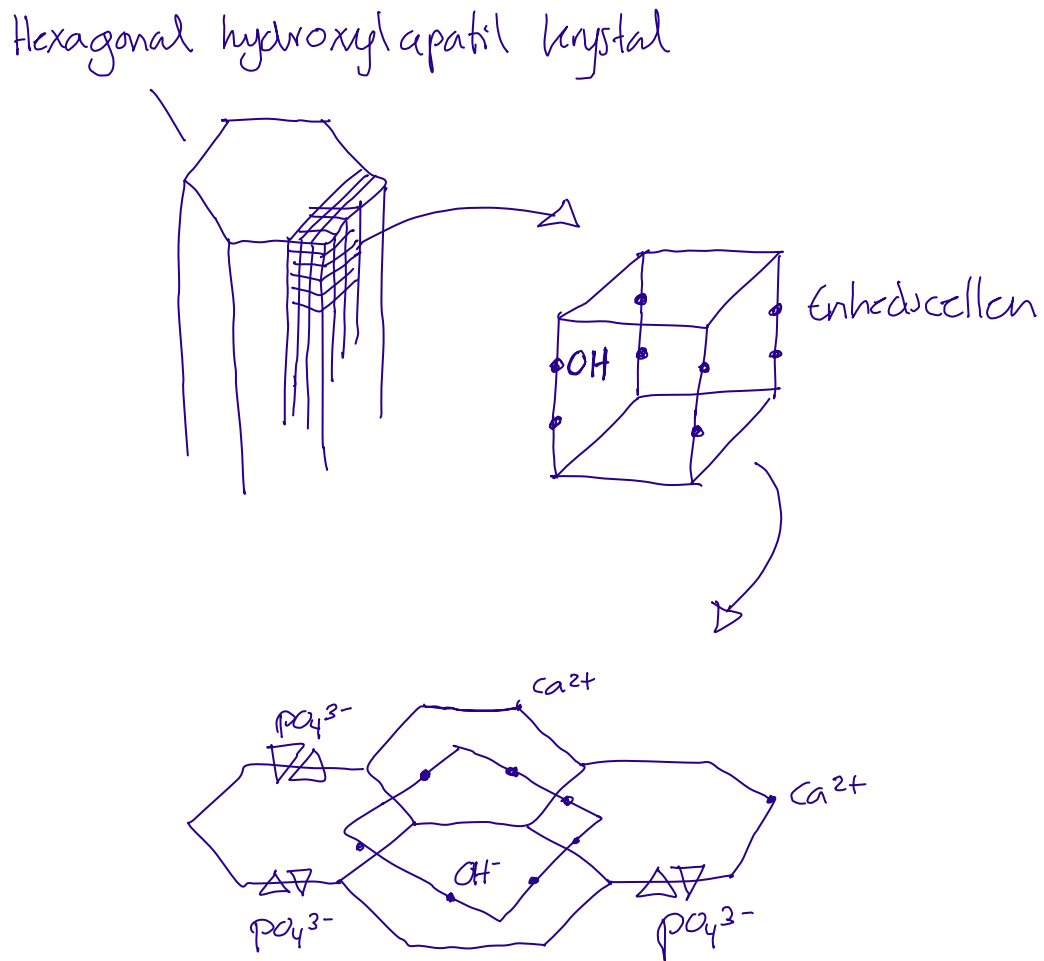 Hexagonal hydroxylapatit krystal
Enhedscellen
OH
Ca²⁺
PO₄³⁻
Ca²⁺
OH⁻
PO₄³⁻
PO₄³⁻